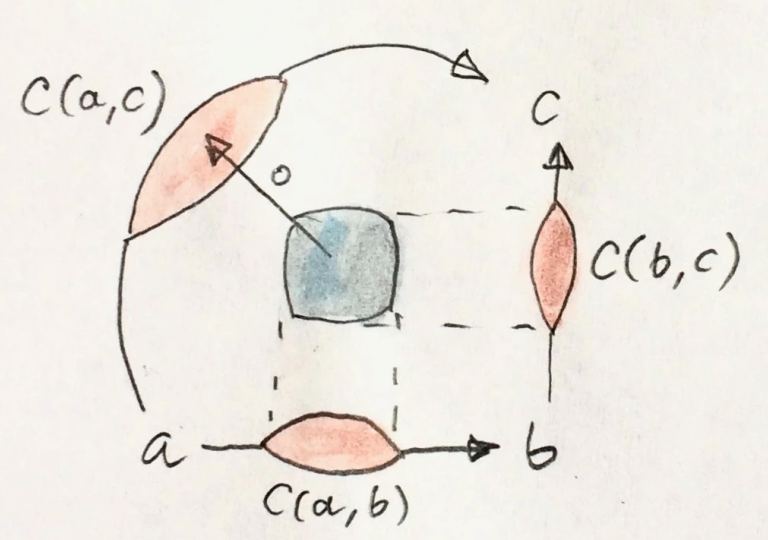 C(a,c)
C
o
C(b,c)
a
b
C(a,b)